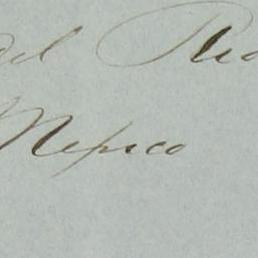 del Rio
Mexico